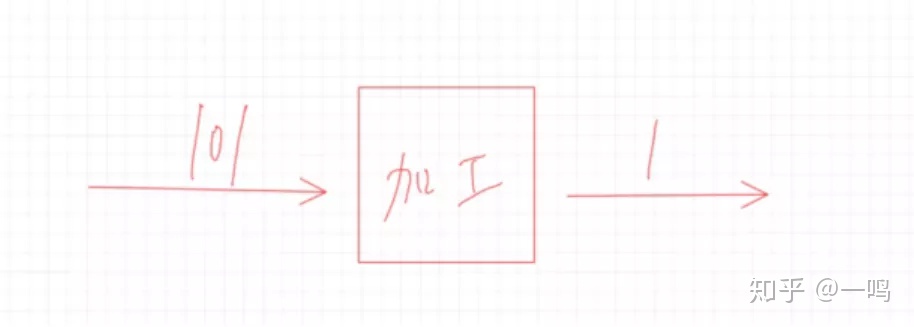 101
加工
1
知乎 @一鸣